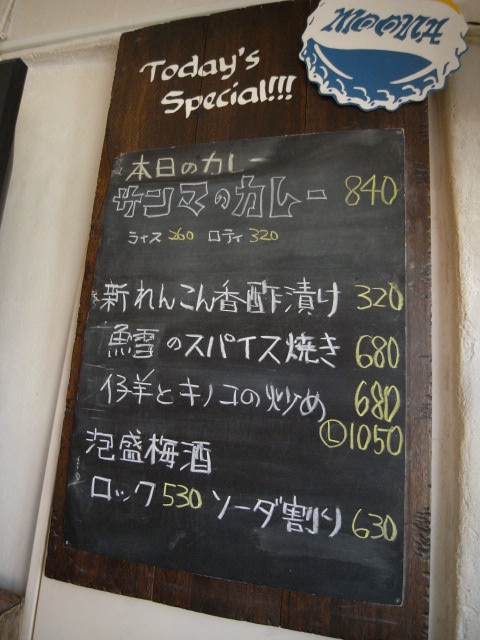 MOONA
Today's
Special!!!
本日のカレー
サンマのカレー 840
ライス 260 ロティ 320
新れんこん香酢漬け 320
鱈のスパイス焼き 680
仔羊とキノコの炒め 680
Ⓛ1050
泡盛梅酒
ロック 530 ソーダ割り 630